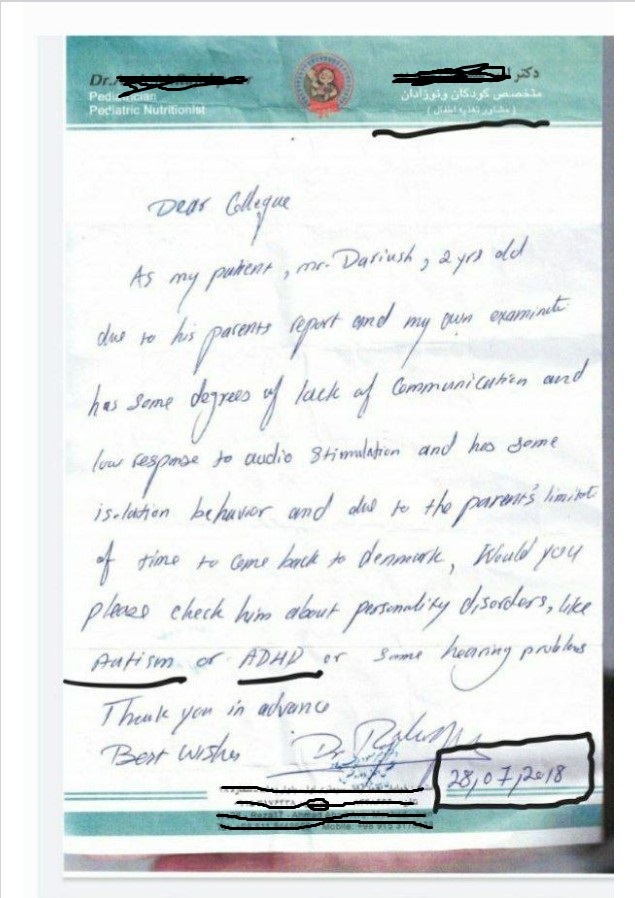 Dr.
دکتر
Pediatrician
متخصص کودکان و نوزادان
Pediatric Nutritionist
( مشاور تغذیه اطفال )
Dear Collegue
As my patient, mr. Dariush, 2 yrs old
due to his parents report and my own examinati
has some degrees of lack of communication and
low response to audio stimulation and has some
isolation behavior and due to the parent's limit
of time to come back to denmark, Would you
please check him about personality disorders, like
Autism or ADHD or some hearing problems
Thank you in advance
Best Wishes
Dr
28,07,2018
Mobile: +98 915